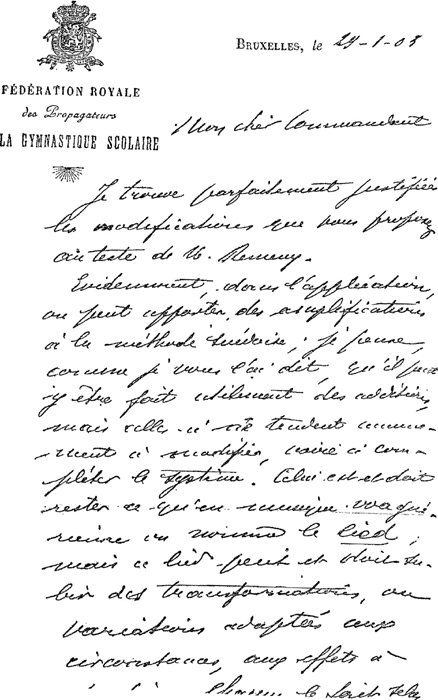 BRUXELLES, le 29-1-05
FÉDÉRATION ROYALE
des Propagateurs
LA GYMNASTIQUE SCOLAIRE
Mon cher Commandant
Je trouve parfaitement justifiées
les modifications que vous proposez
au texte de M.
Evidemment, dans l'application,
on peut apporter des amplifications
à la méthode suédoise ; je pense,
comme je vous l'ai dit, qu'il peut
y être fait utilement des additions,
mais celles-ci ne tendent
ment à modifier, voire à com-
pléter le système. Celui est et doit
rester ce qu'en musique
on nomme le lied ;
mais ce lied peut et doit su-
bir des transformations, ou
variations adaptées aux
circonstances, aux effets à